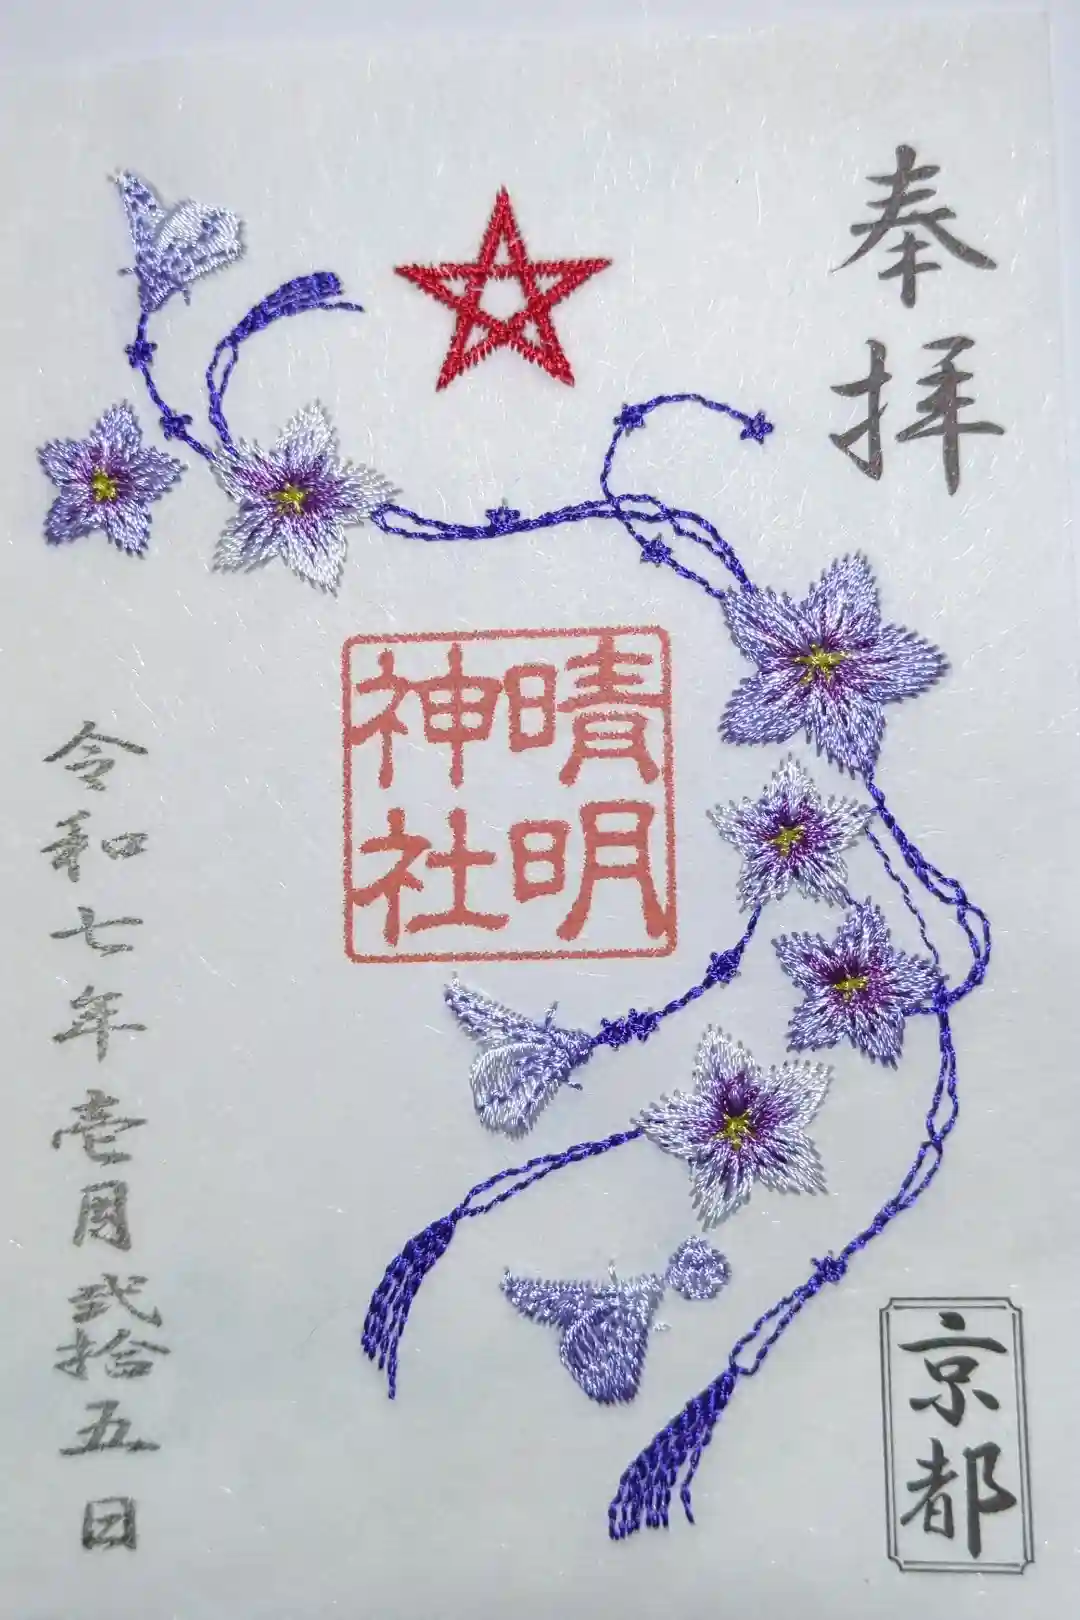 奉拝
晴明
神社
令和七年壱月弐拾五日
京都